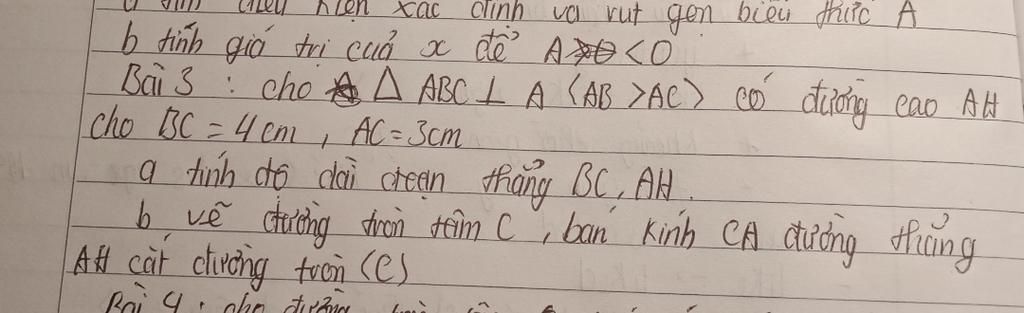 a tìm điều kiện xác định và rút gọn biểu thức A
b tính giá trị của x để A < 0
Bài 3 : cho Δ ABC ⊥ A (AB > AC) có đường cao AH
cho BC = 4cm, AC = 3cm
a tính độ dài đoạn thẳng BC, AH.
b vẽ đường tròn tâm C, bán kính CA đường thẳng
AH cắt đường tròn (C)
Bài 4 : cho đường